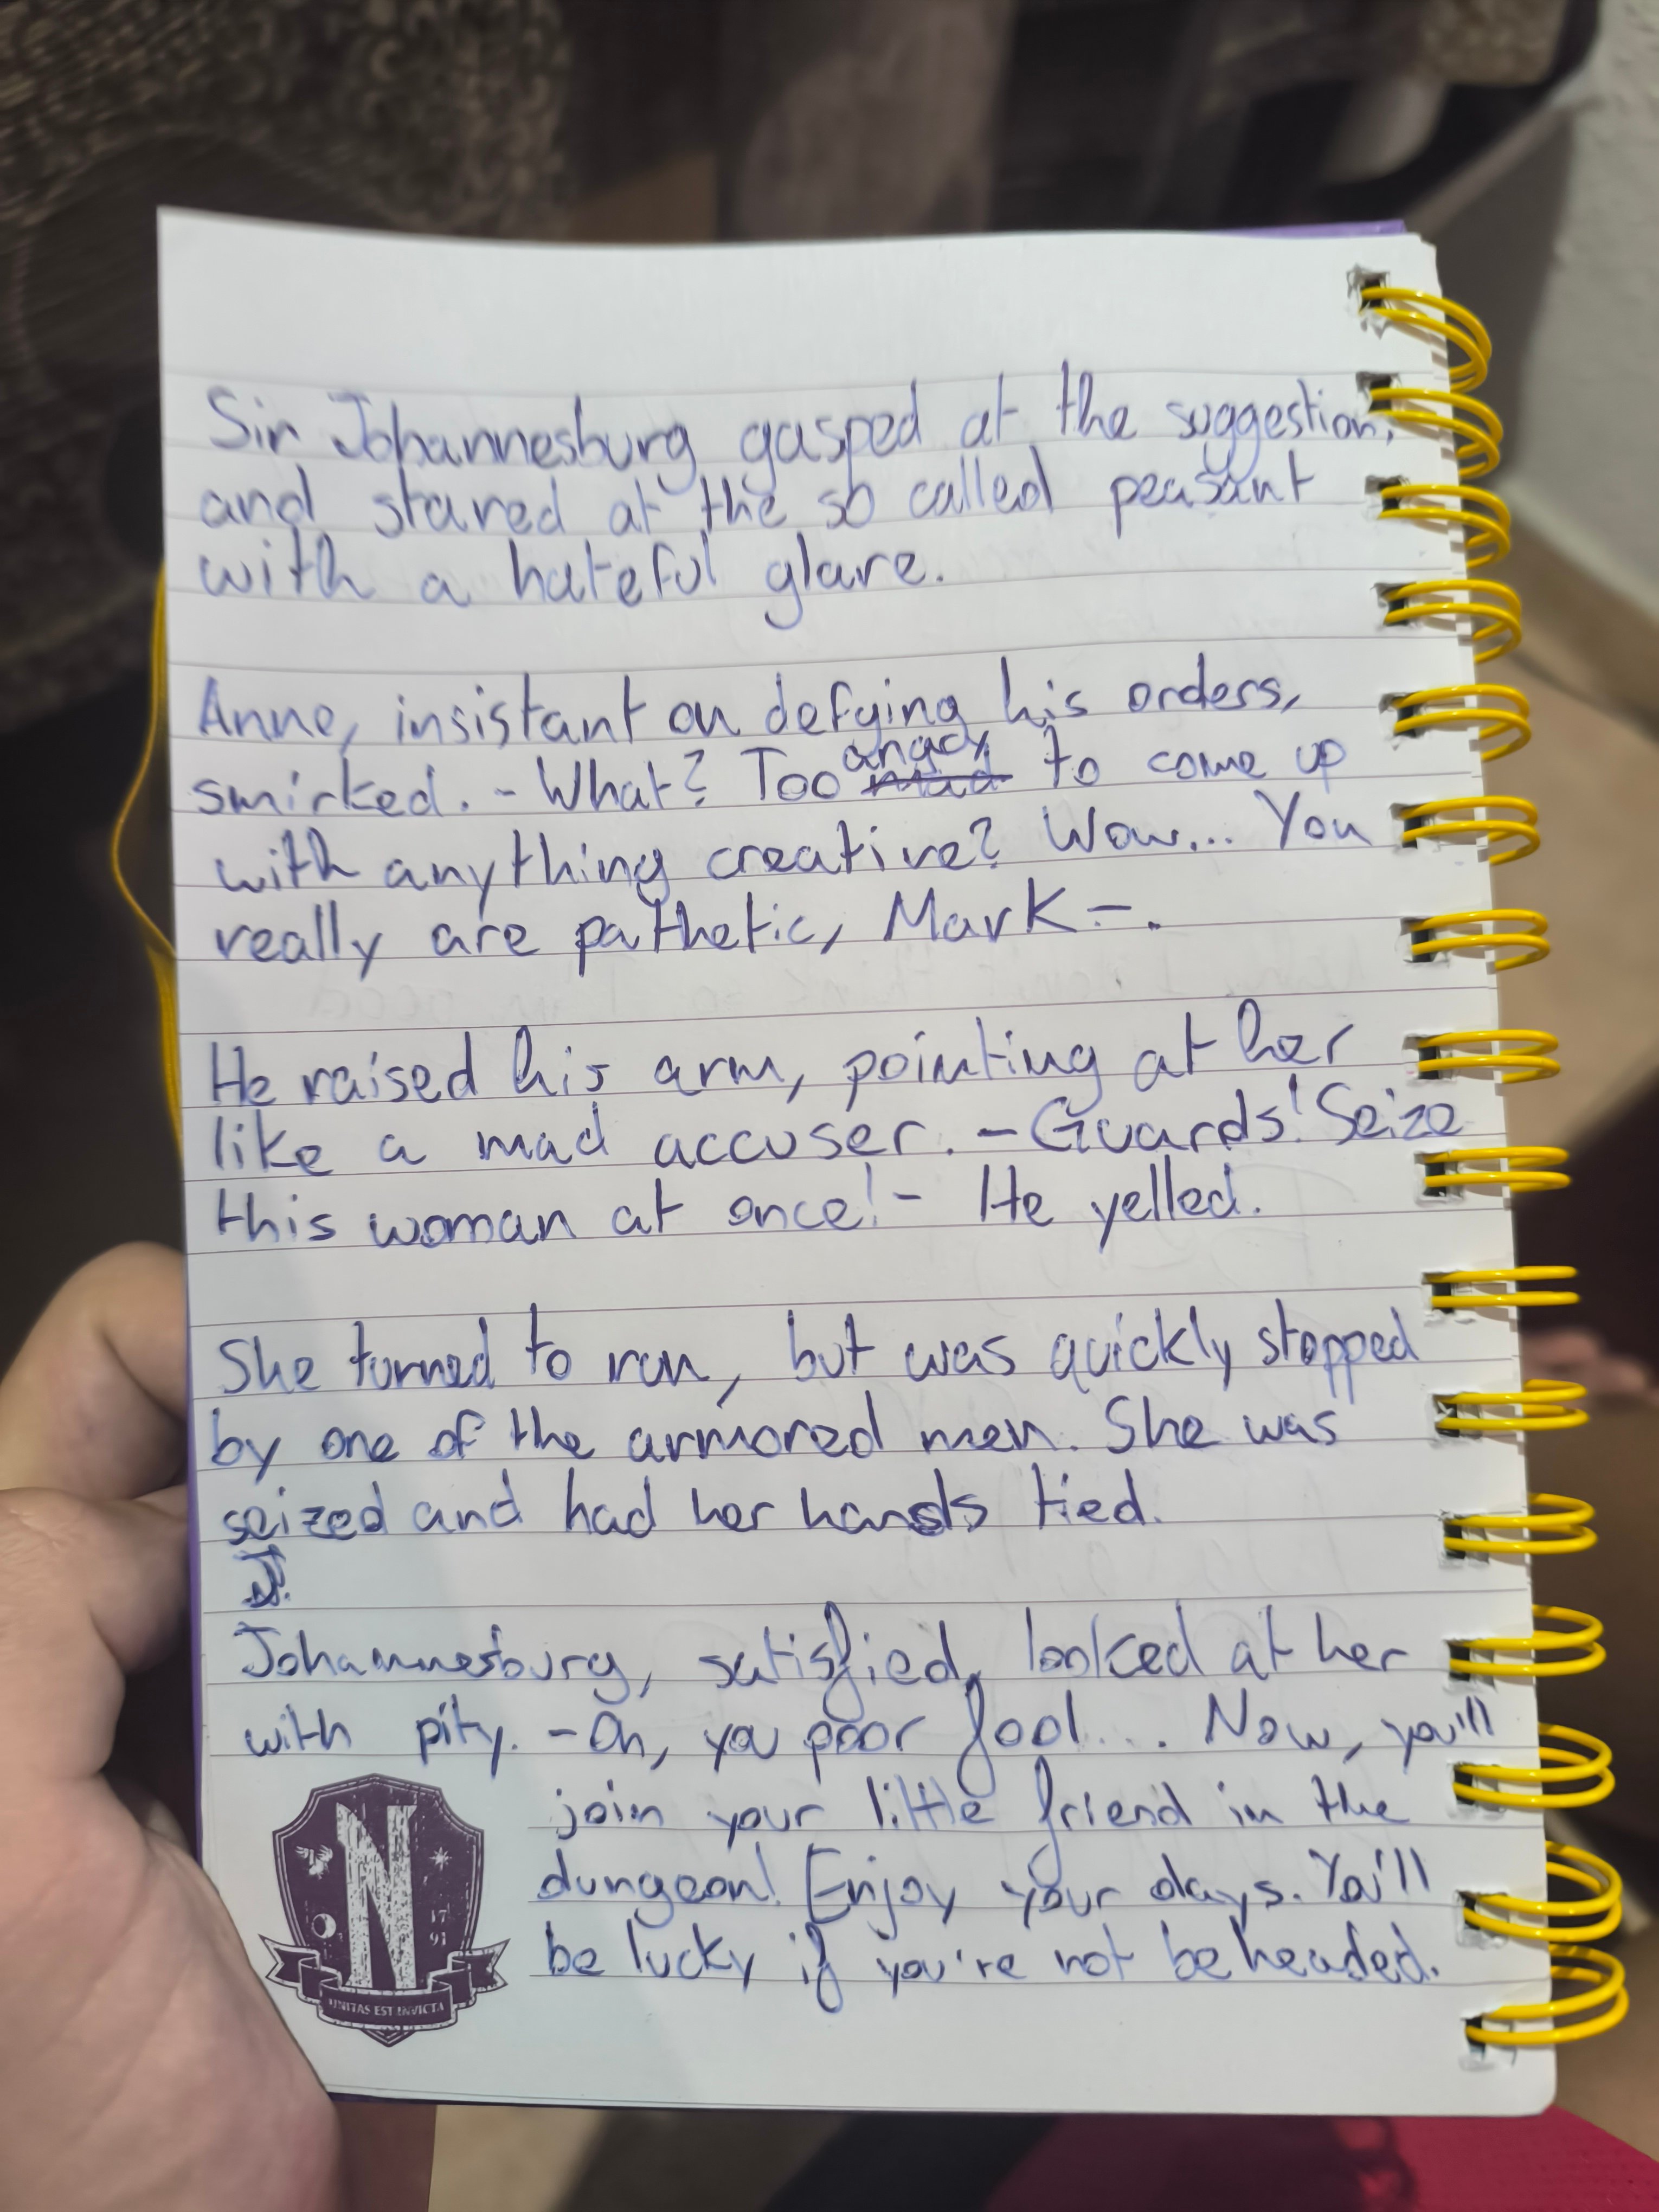 Sir Johannesburg gasped at the suggestion,
and stared at the so called peasant
with a hateful glare.
Anne, insistant on defying his orders,
smirked. - What? Too angry mad to come up
with anything creative? Wow... You
really are pathetic, Mark -.
He raised his arm, pointing at her
like a mad accuser. - Guards! Seize
this woman at once! - He yelled.
She turned to run, but was quickly stopped
by one of the armored men. She was
seized and had her hands tied.
Johannesburg, satisfied, looked at her
with pity. - Oh, you poor fool.... Now, you'll
join your little friend in the
dungeon! Enjoy your days. You'll
be lucky if you're not beheaded.
N
17
91
UNITAS EST INVICTA